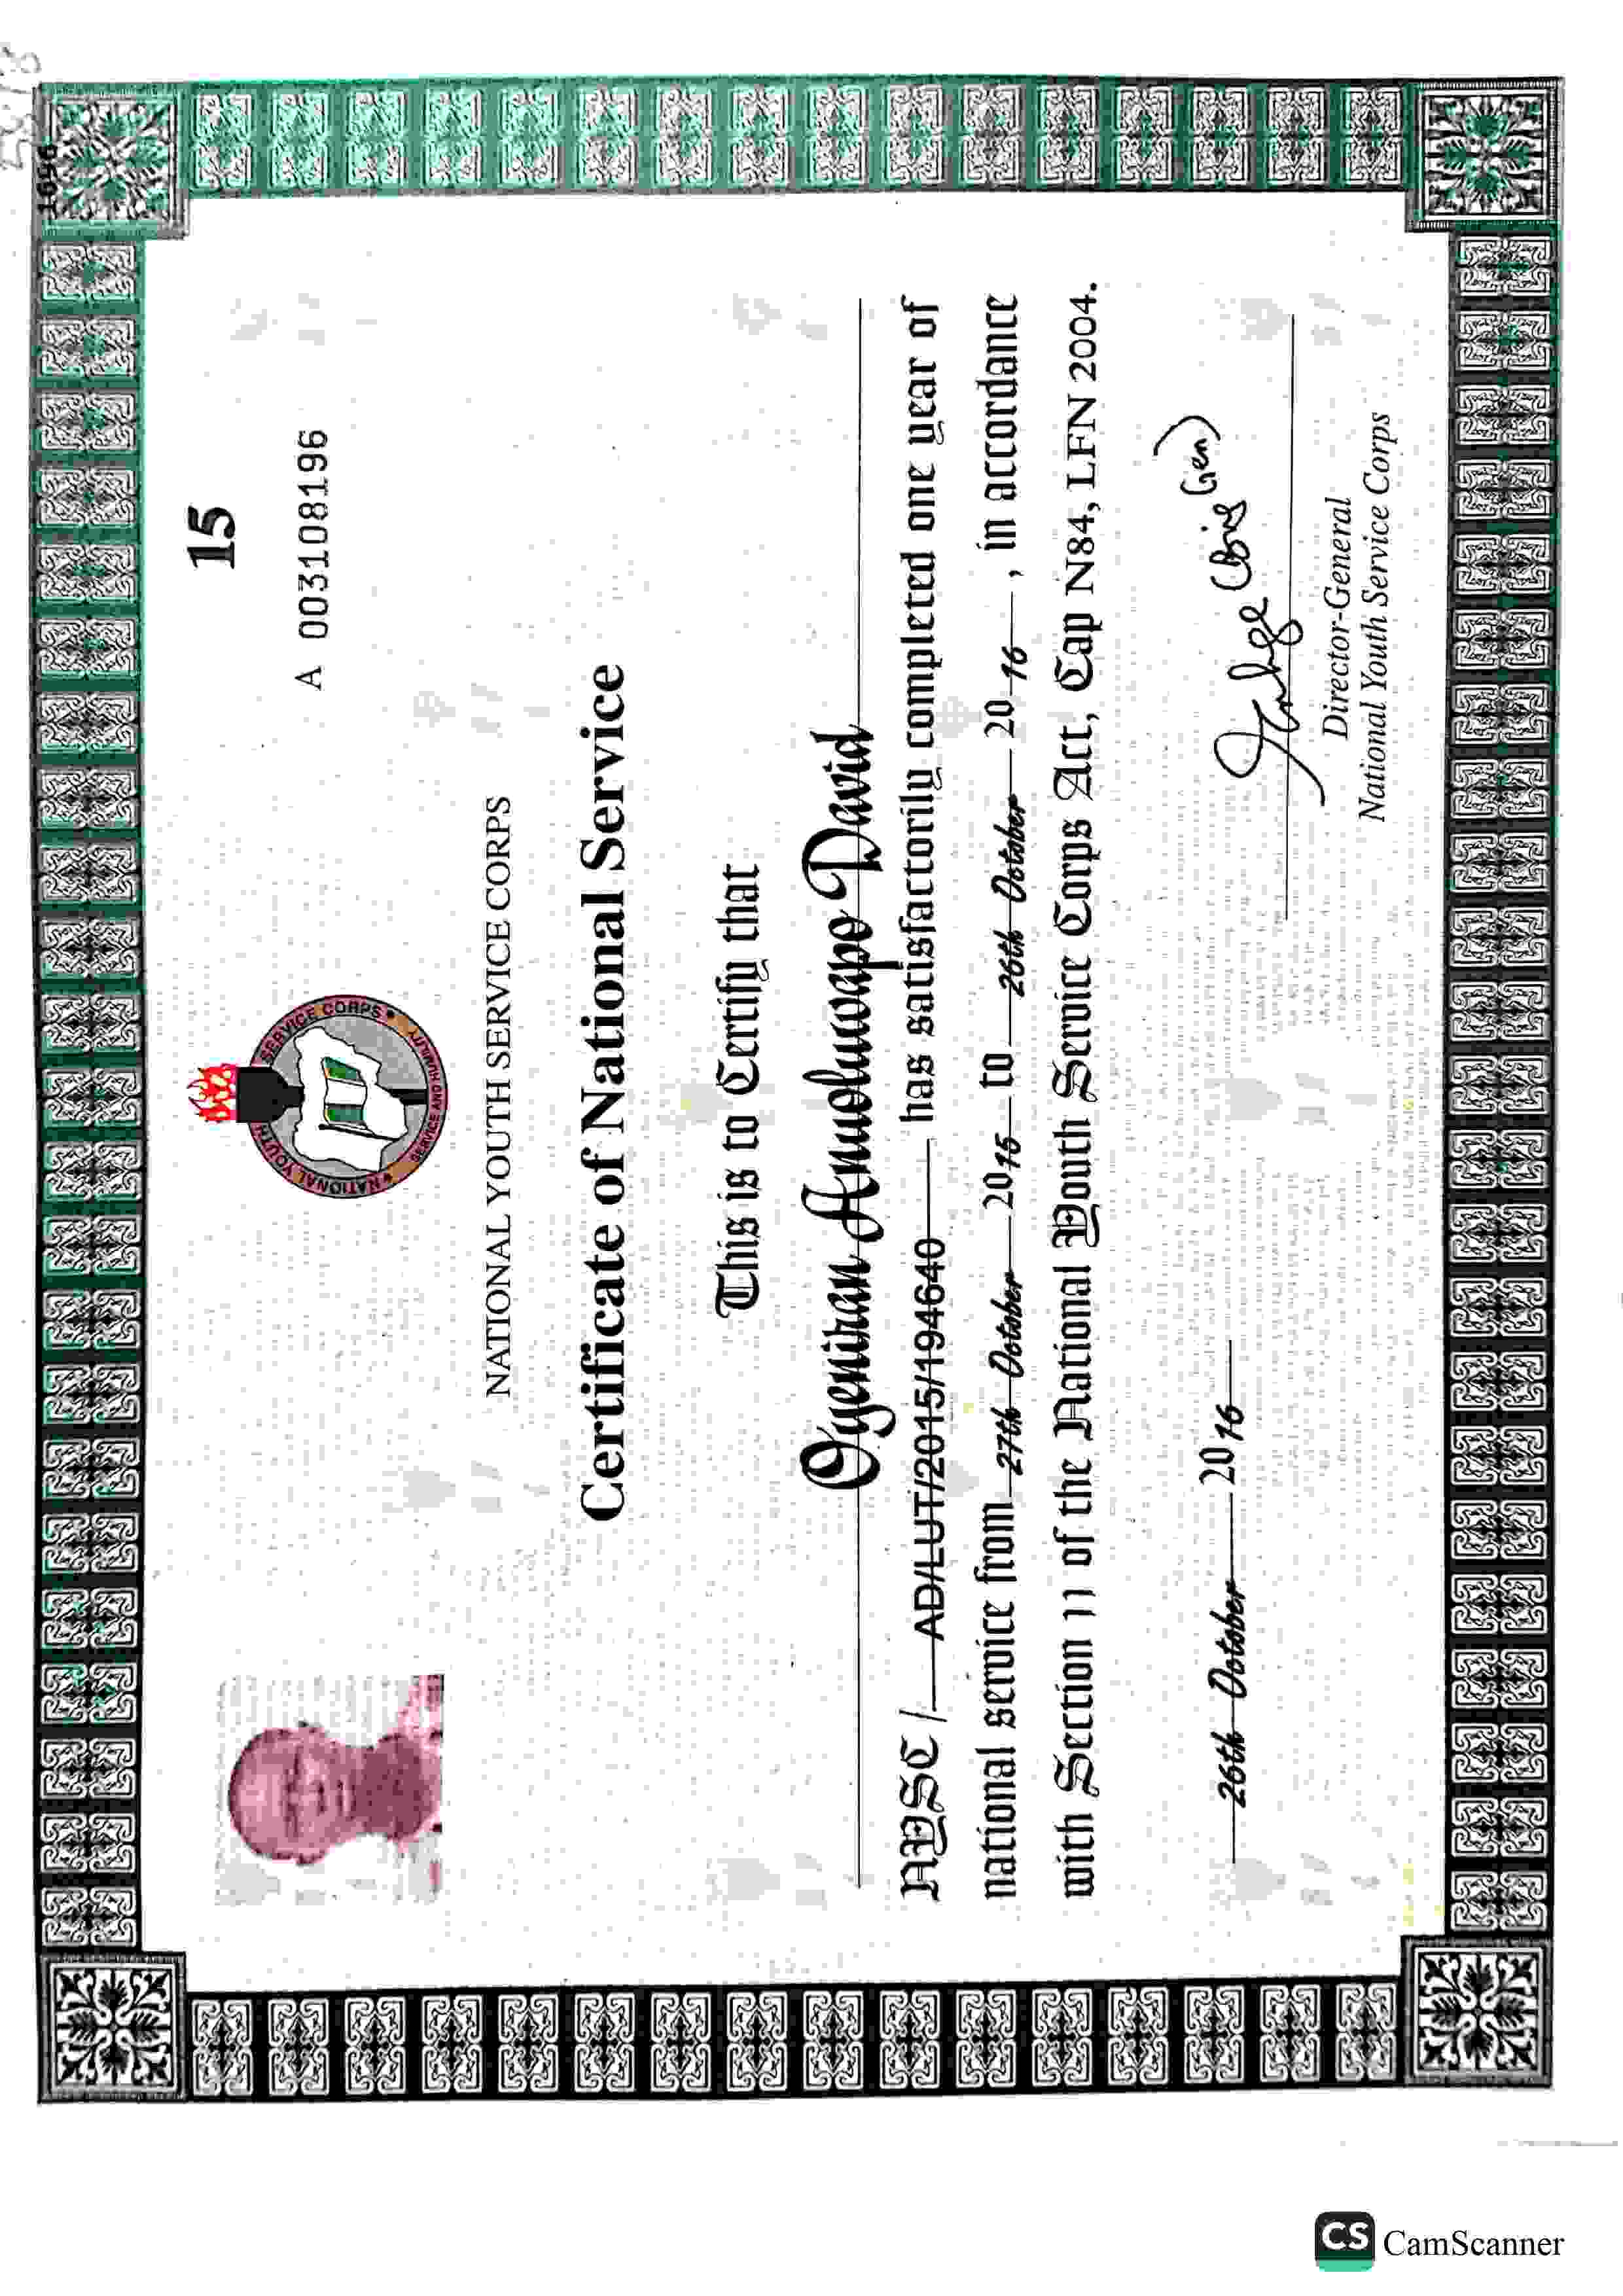 1696
15
A 003108196
NATIONAL YOUTH SERVICE CORPS
SERVICE AND HUMILITY
NATIONAL YOUTH SERVICE CORPS
Certificate of National Service
This is to Certify that
Oyeniran Anuoluwapo David
NYSC / AD/LUT/2015/194640 has satisfactorily completed one year of
national service from 27th October 2015 to 26th October 2016, in accordance
with Section 11 of the National Youth Service Corps Act, Cap N84, LFN 2004.
26th October 2016
(Brig Gen)
Director-General
National Youth Service Corps
CS CamScanner